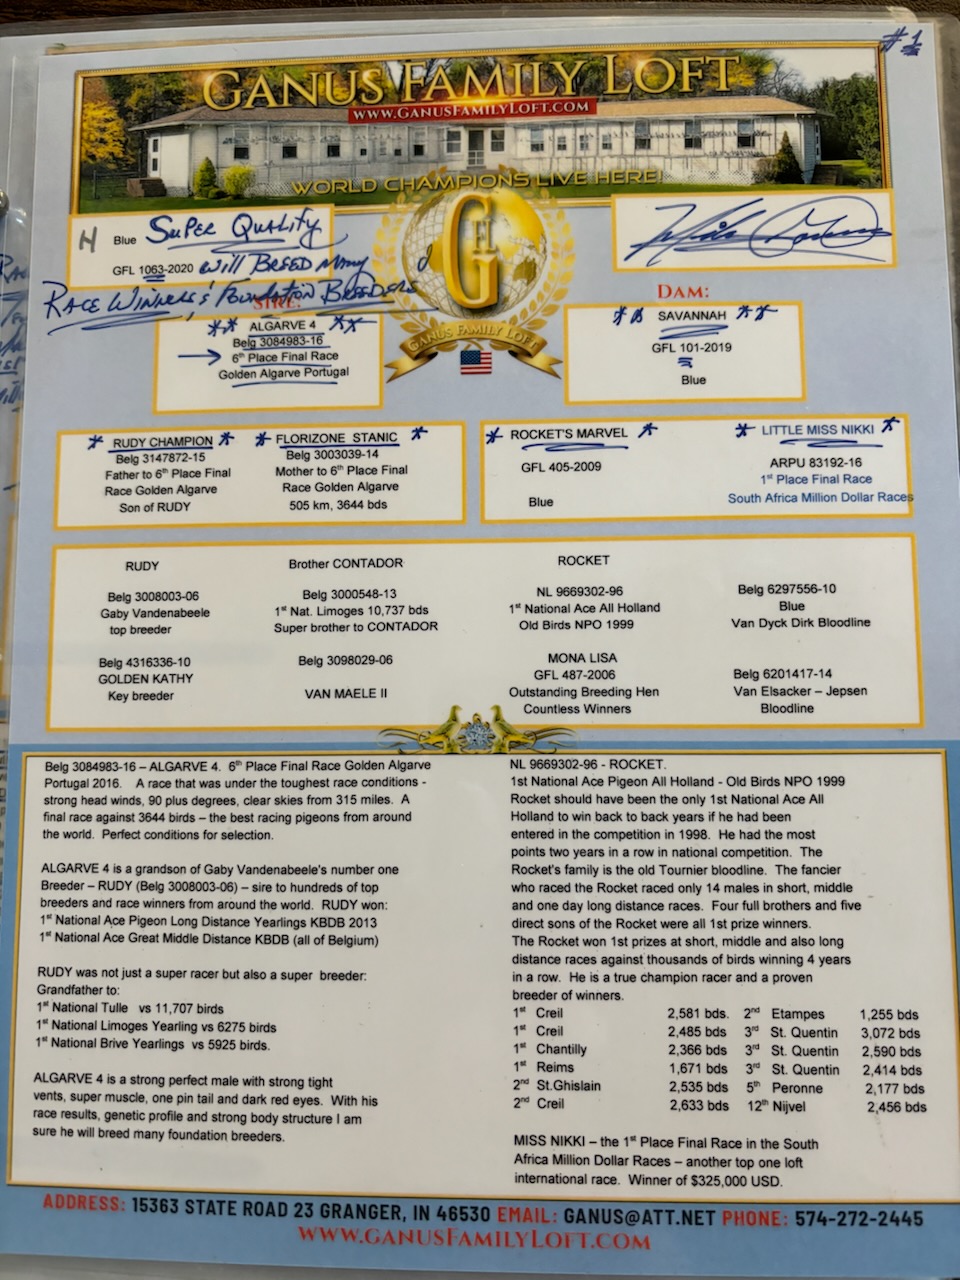 #1
GANUS FAMILY LOFT
WWW.GANUSFAMILYLOFT.COM
WORLD CHAMPIONS LIVE HERE!
GFL
GANUS FAMILY LOFT
H Blue SUPER QUALITY
GFL 1063-2020 WILL BREED MANY
RACE WINNERS & FOUNDATION BREEDERS
SIRE:
** ALGARVE 4 **
Belg 3084983-16
→ 6th Place Final Race
Golden Algarve Portugal
DAM:
** SAVANNAH **
GFL 101-2019
Blue
* RUDY CHAMPION *
Belg 3147872-15
Father to 6th Place Final
Race Golden Algarve
Son of RUDY
* FLORIZONE STANIC *
Belg 3003039-14
Mother to 6th Place Final
Race Golden Algarve
505 km, 3644 bds
* ROCKET'S MARVEL *
GFL 405-2009
Blue
* LITTLE MISS NIKKI *
ARPU 83192-16
1st Place Final Race
South Africa Million Dollar Races
RUDY
Belg 3008003-06
Gaby Vandenabeele
top breeder
Belg 4316336-10
GOLDEN KATHY
Key breeder
Brother CONTADOR
Belg 3000548-13
1st Nat. Limoges 10,737 bds
Super brother to CONTADOR
Belg 3098029-06
VAN MAELE II
ROCKET
NL 9669302-96
1st National Ace All Holland
Old Birds NPO 1999
MONA LISA
GFL 487-2006
Outstanding Breeding Hen
Countless Winners
Belg 6297556-10
Blue
Van Dyck Dirk Bloodline
Belg 6201417-14
Van Elsacker – Jepsen
Bloodline
Belg 3084983-16 – ALGARVE 4. 6th Place Final Race Golden Algarve
Portugal 2016. A race that was under the toughest race conditions -
strong head winds, 90 plus degrees, clear skies from 315 miles. A
final race against 3644 birds – the best racing pigeons from around
the world. Perfect conditions for selection.
ALGARVE 4 is a grandson of Gaby Vandenabeele's number one
Breeder – RUDY (Belg 3008003-06) – sire to hundreds of top
breeders and race winners from around the world. RUDY won:
1st National Ace Pigeon Long Distance Yearlings KBDB 2013
1st National Ace Great Middle Distance KBDB (all of Belgium)
RUDY was not just a super racer but also a super breeder:
Grandfather to:
1st National Tulle vs 11,707 birds
1st National Limoges Yearling vs 6275 birds
1st National Brive Yearlings vs 5925 birds.
ALGARVE 4 is a strong perfect male with strong tight
vents, super muscle, one pin tail and dark red eyes. With his
race results, genetic profile and strong body structure I am
sure he will breed many foundation breeders.
NL 9669302-96 - ROCKET.
1st National Ace Pigeon All Holland - Old Birds NPO 1999
Rocket should have been the only 1st National Ace All
Holland to win back to back years if he had been
entered in the competition in 1998. He had the most
points two years in a row in national competition. The
Rocket's family is the old Tournier bloodline. The fancier
who raced the Rocket raced only 14 males in short, middle
and one day long distance races. Four full brothers and five
direct sons of the Rocket were all 1st prize winners.
The Rocket won 1st prizes at short, middle and also long
distance races against thousands of birds winning 4 years
in a row. He is a true champion racer and a proven
breeder of winners.
1st Creil 2,581 bds. 2nd Etampes 1,255 bds
1st Creil 2,485 bds 3rd St. Quentin 3,072 bds
1st Chantilly 2,366 bds 3rd St. Quentin 2,590 bds
1st Reims 1,671 bds 3rd St. Quentin 2,414 bds
2nd St.Ghislain 2,535 bds 5th Peronne 2,177 bds
2nd Creil 2,633 bds 12th Nijvel 2,456 bds
MISS NIKKI – the 1st Place Final Race in the South
Africa Million Dollar Races – another top one loft
international race. Winner of $325,000 USD.
ADDRESS: 15363 STATE ROAD 23 GRANGER, IN 46530 EMAIL: GANUS@ATT.NET PHONE: 574-272-2445
WWW.GANUSFAMILYLOFT.COM